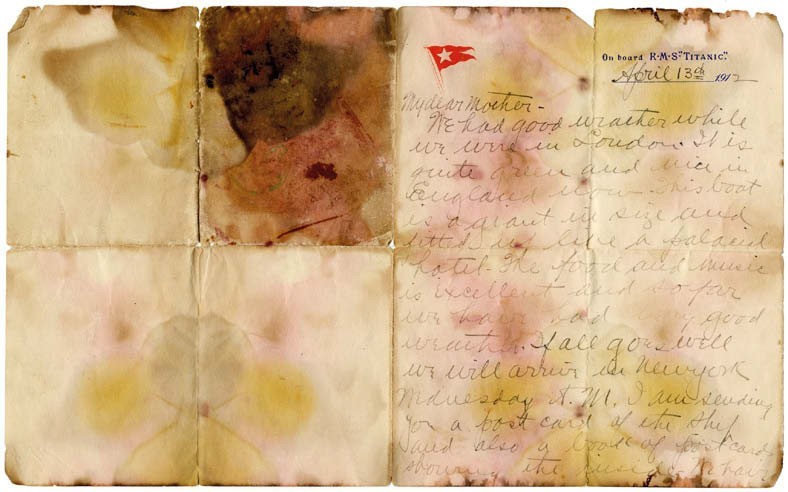 On board R·M·S "TITANIC".
April 13th 1912
My dear Mother -
We had good weather while
we were in London. It is
quite green and nice in
England now. This boat
is a giant in size and
fitted up like a palacial
hotel. The food and music
is excellent and so far
we have had very good
weather. If all goes well
we will arrive in New York
Wednesday A.M. I am sending
you a post card of the ship
and also a book of postcards
showing the inside.